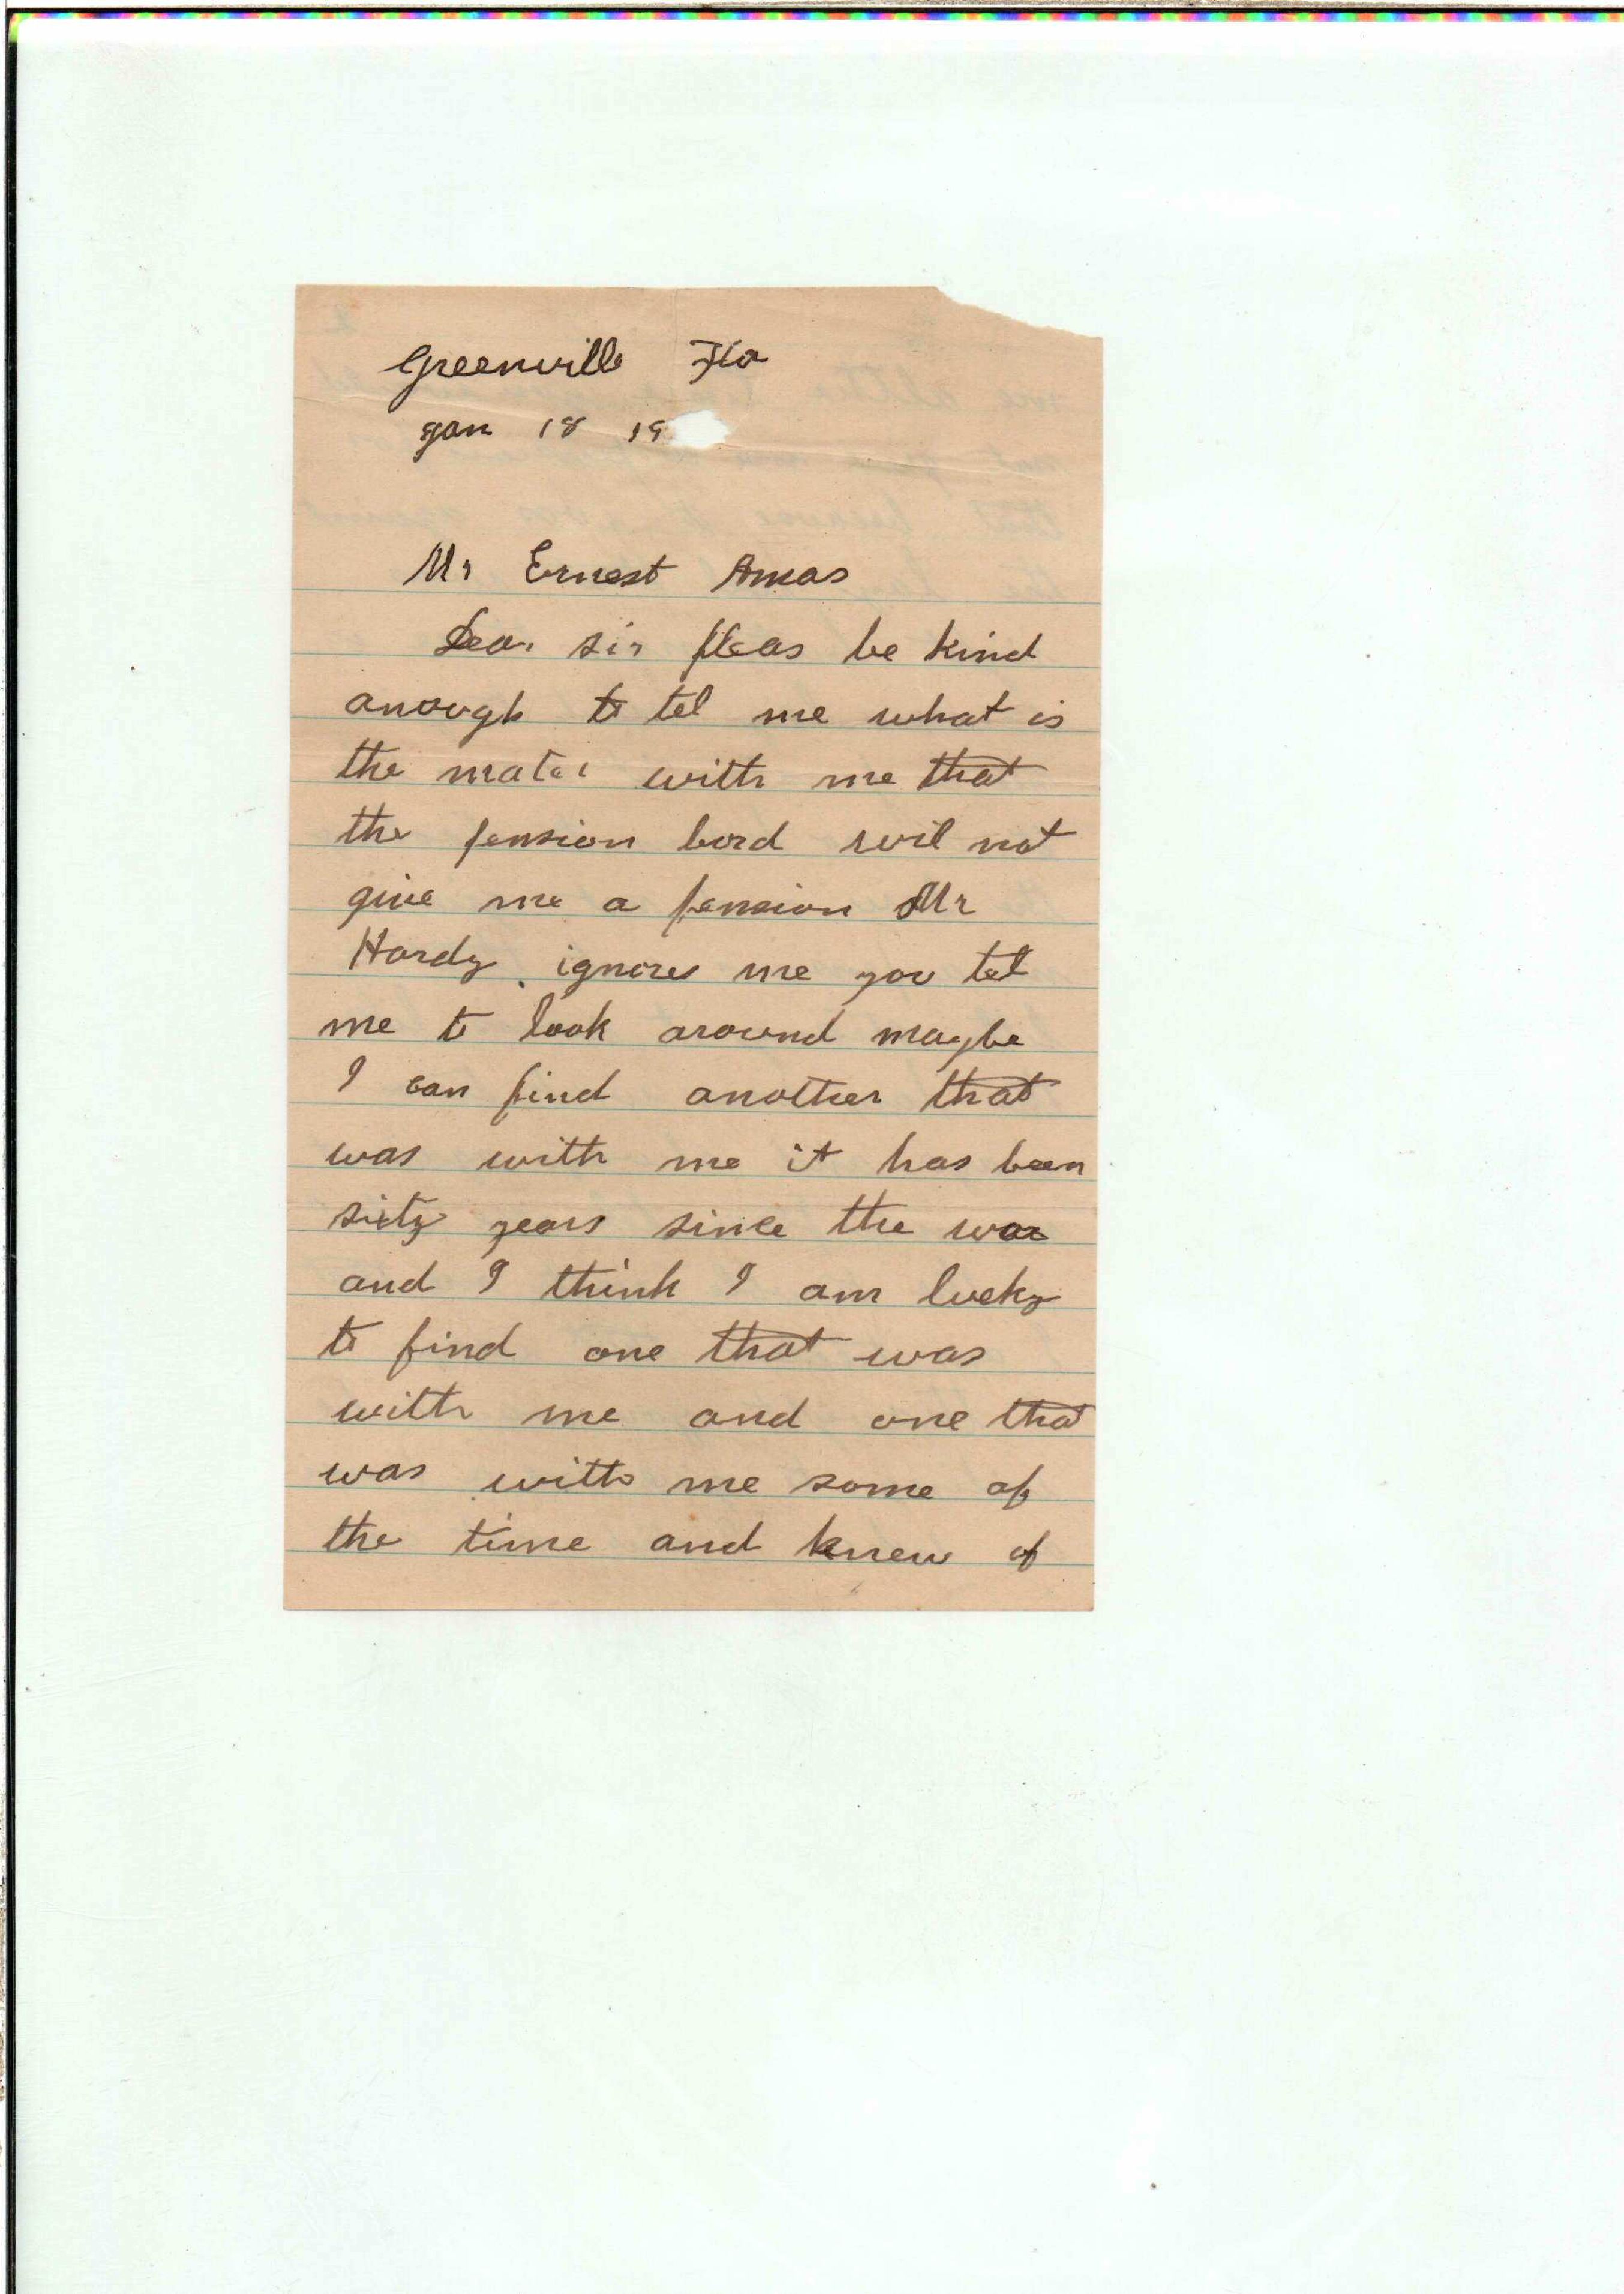 Greenville Fla
Jan 18 19
Mr Ernest Amas
Dear sir pleas be kind
anough to tel me what is
the mater with me that
the pension bord wil not
give me a pension Mr
Hardy ignores me you tel
me to look around maybe
I can find another that
was with me it has been
sixty years since the war
and I think I am lucky
to find one that was
with me and one that
was with me some of
the time and knew of